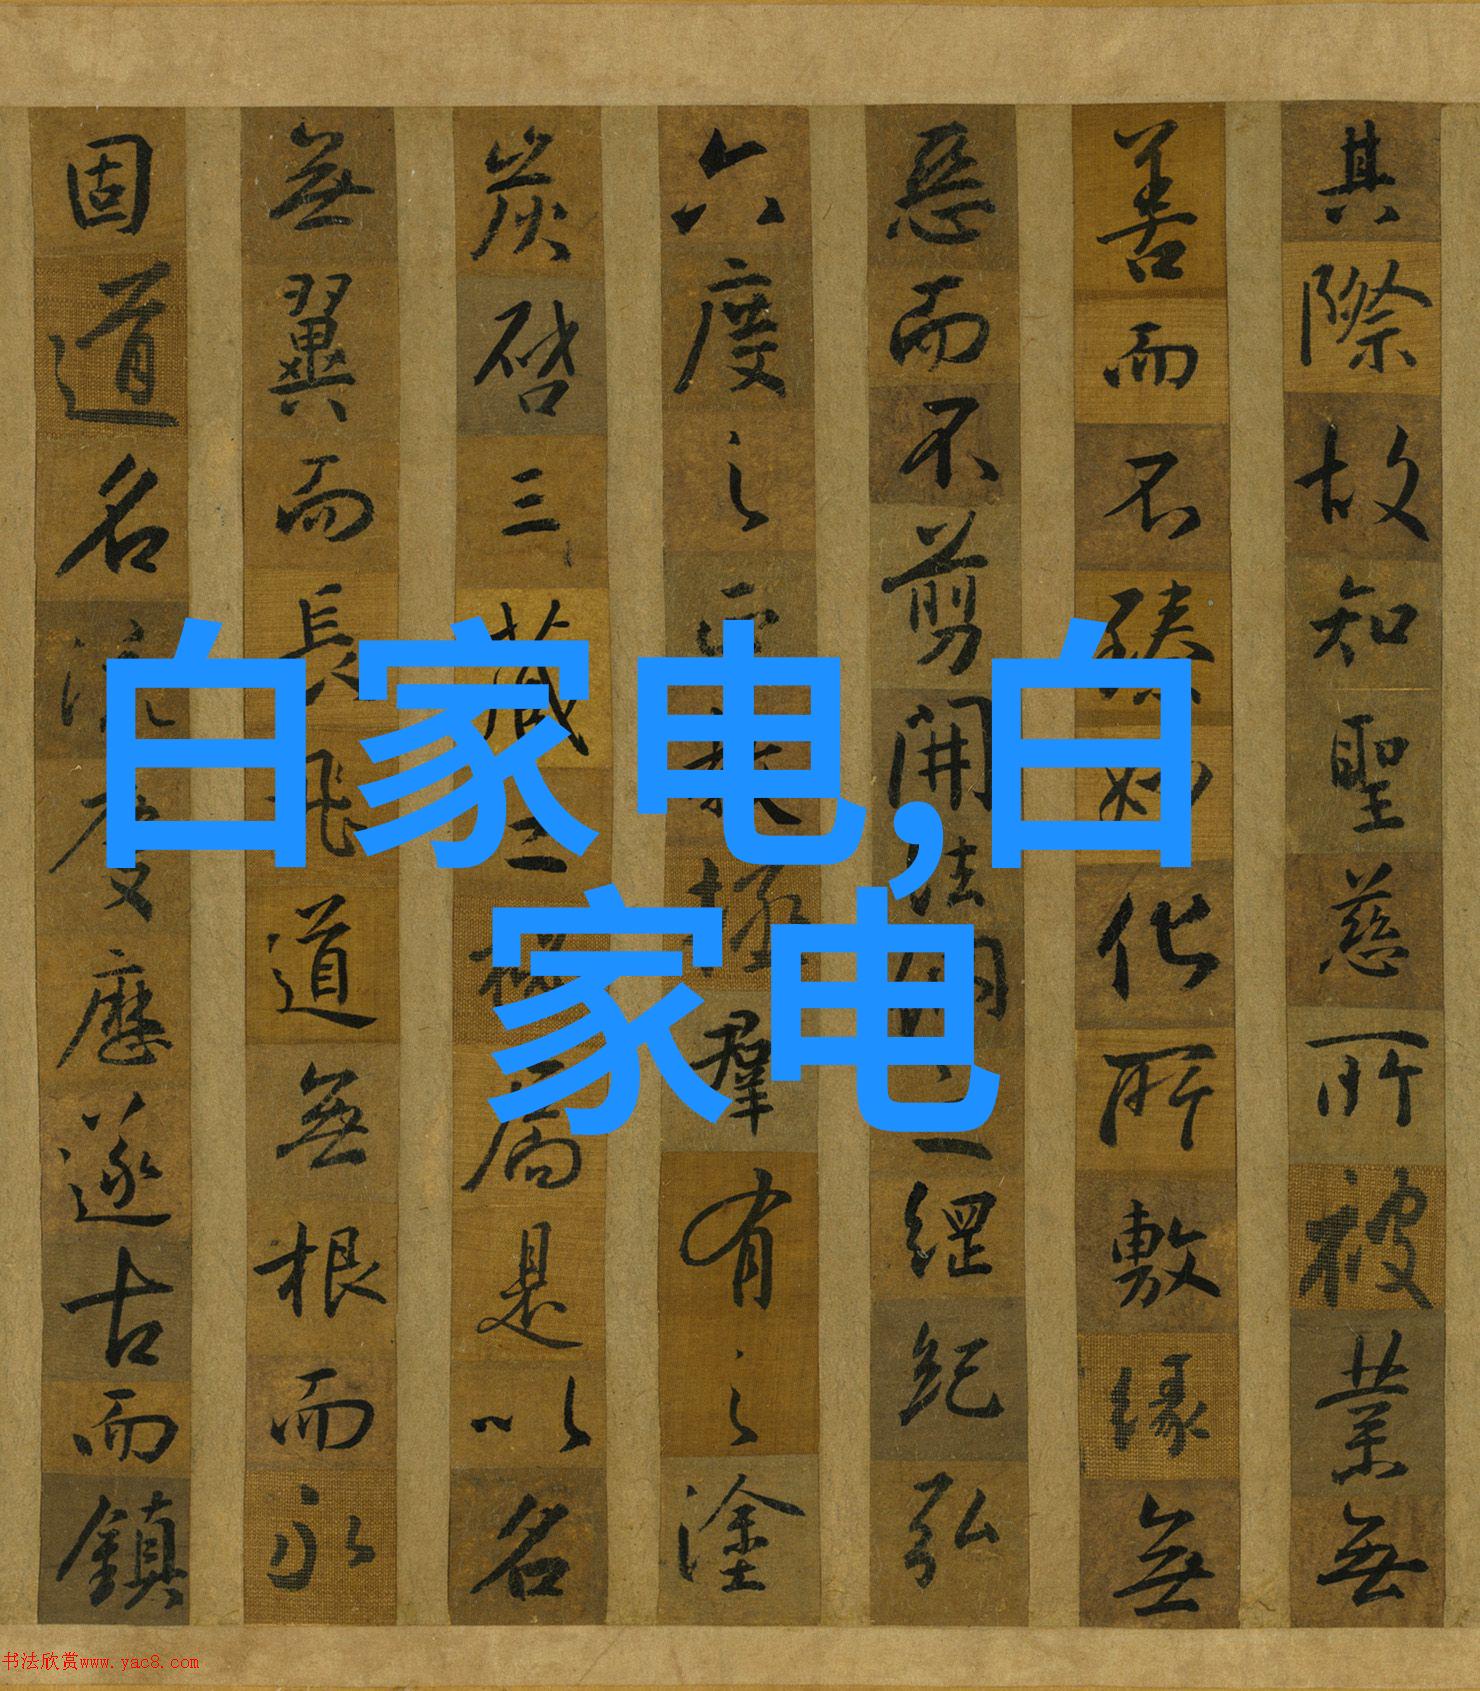 白家电,白
家电
其際故知聖慈所被業無
善而不臻妙化所敷緣無
惡而不剪開法網之綱紀弘
六度之正教拯羣有之塗
炭啓三藏之秘扃是以名
無翼而長飛道無根而永
固道名流慶歷遂古而鎮
书法欣赏www.yac8.com